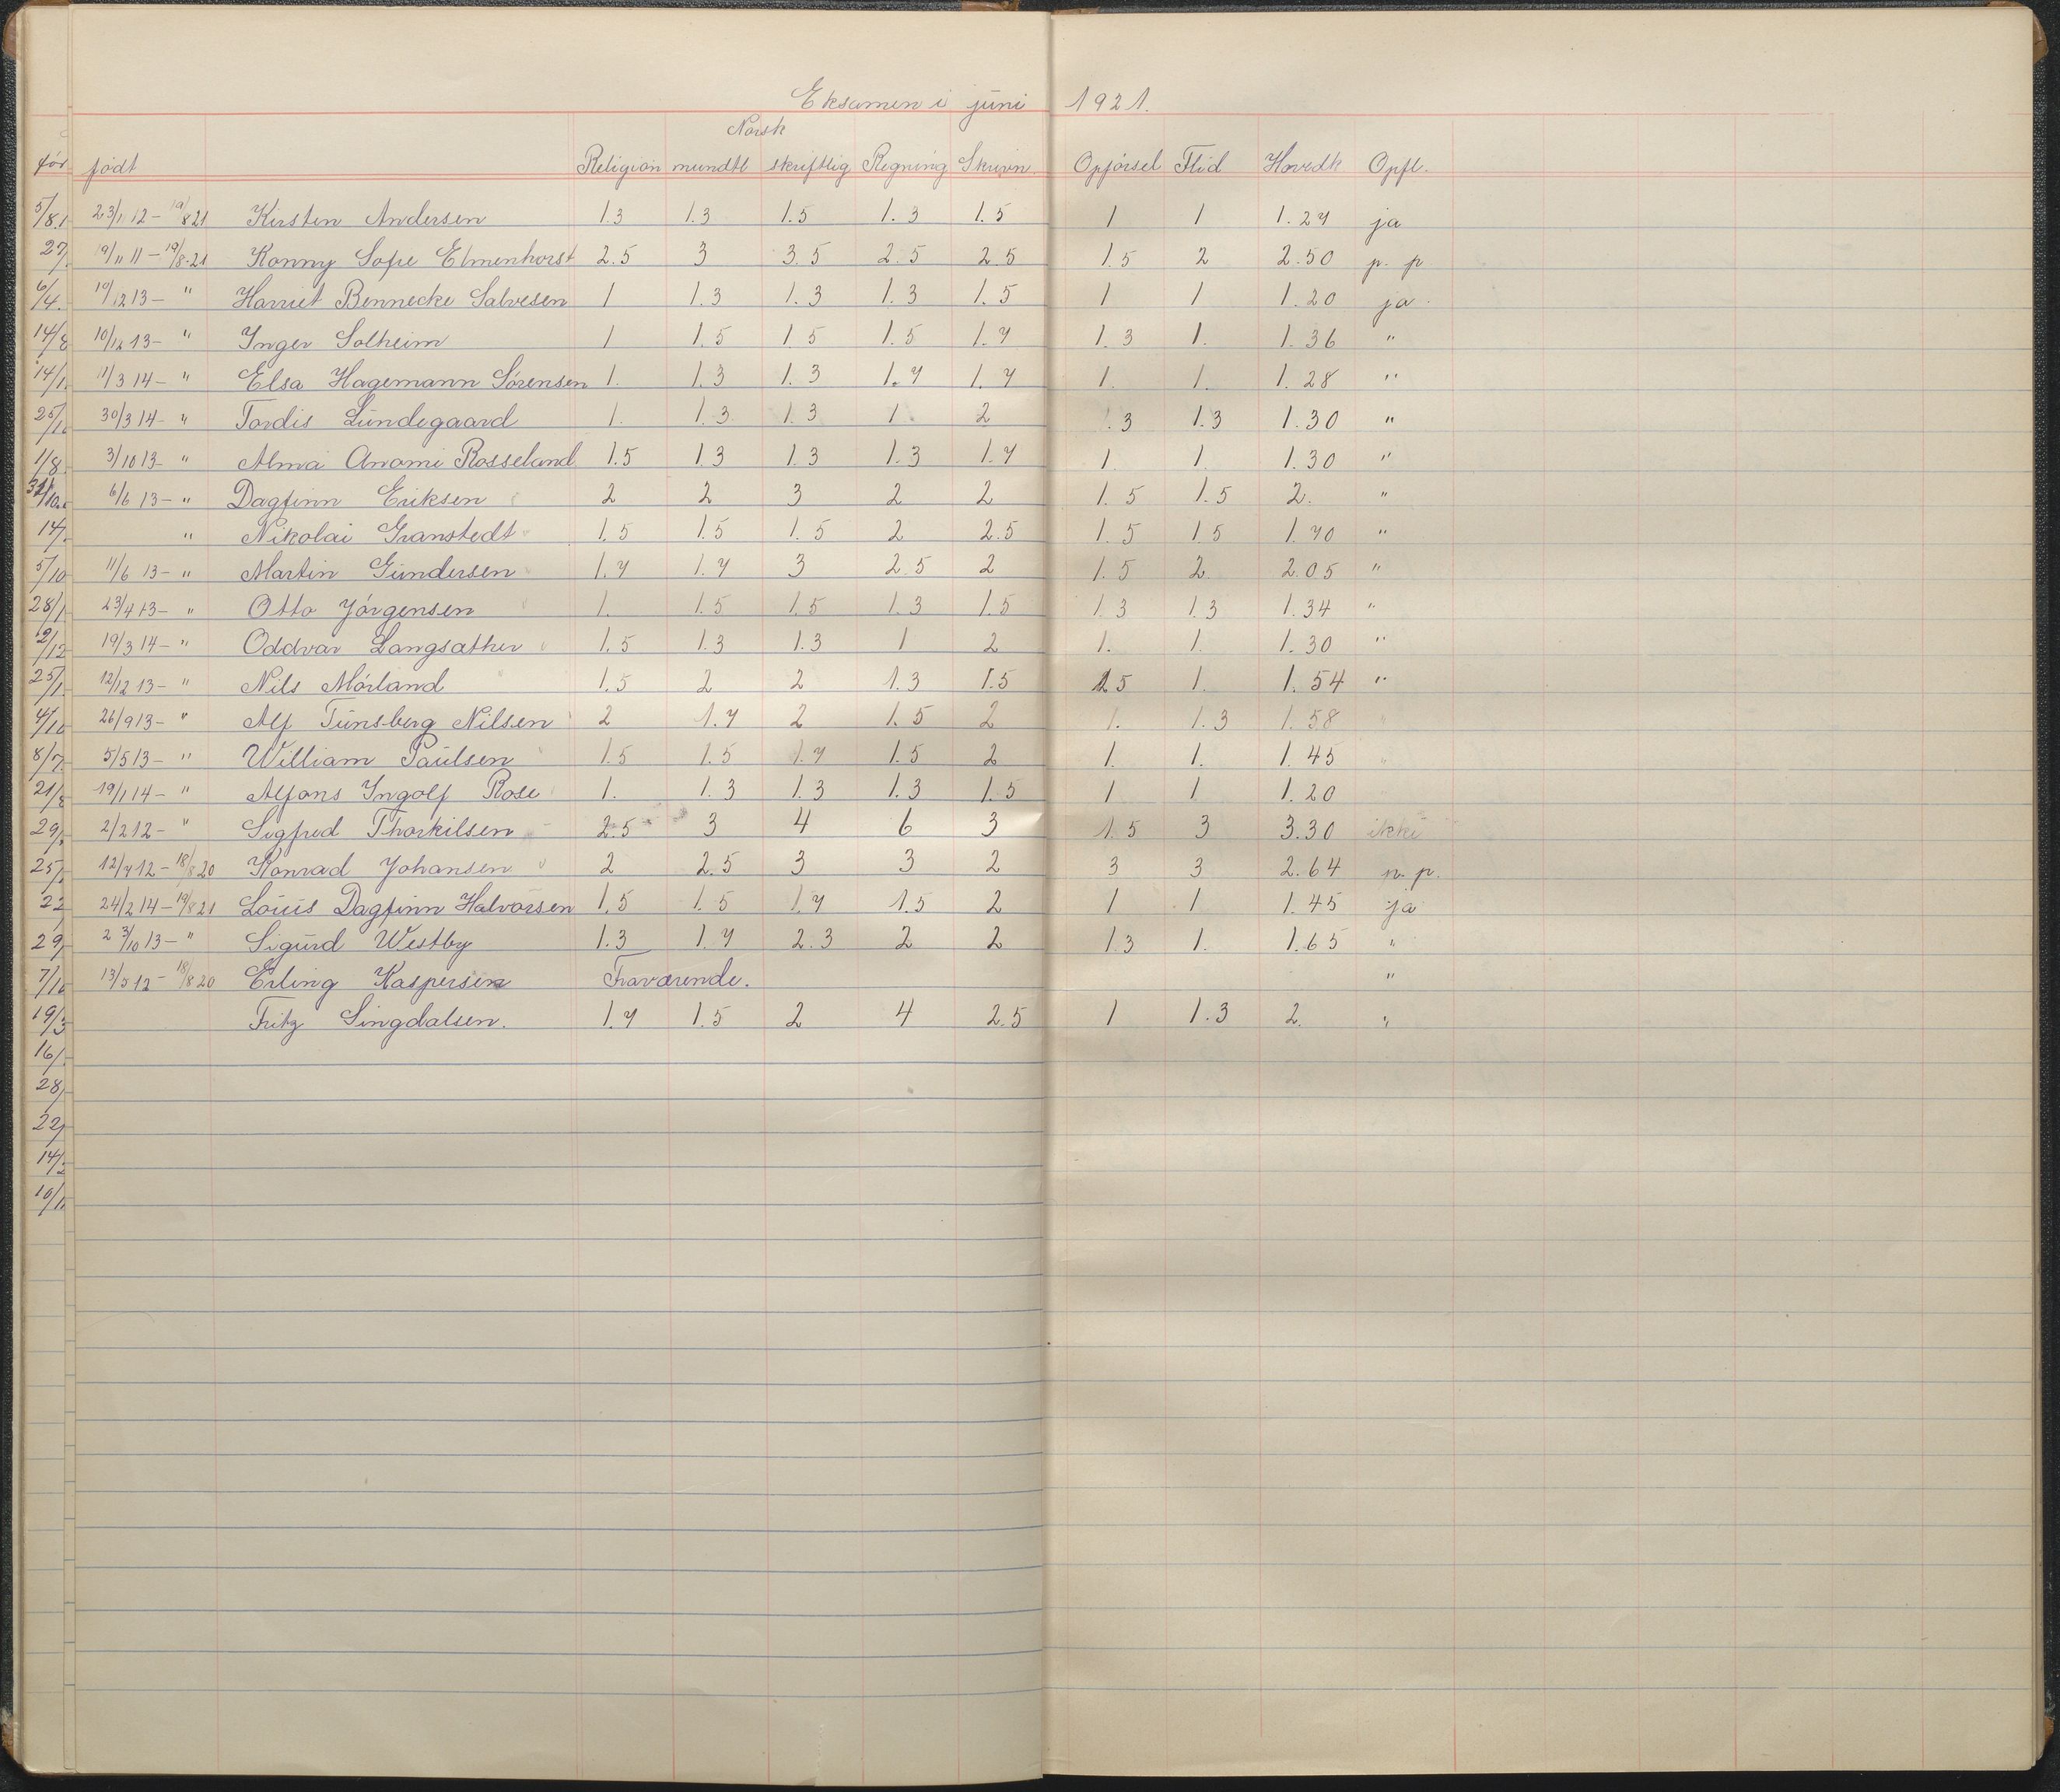 Eksamen i juni 1921.
Norsk
født Religion mundtl skriftlig Regning Skrivn. Opførsel Flid Hovedk Opfl.
5/8.1 23/1 12 - 19/8 21 Kirsten Andersen 1.3 1.3 1.5 1.3 1.5 1 1 1.27 ja
27/ 19/11 11 - 19/8-21 Konny Sofie Elmenhorst 2.5 3 3.5 2.5 2.5 1.5 2 2.50 p. p
6/4. 19/12 13 - " Harriet Bennecke Salvesen 1 1.3 1.3 1.3 1.5 1 1 1.20 ja.
14/8 10/12 13 - " Inger Solheim 1 1.5 1.5 1.5 1.7 1.3 1. 1.36 "
14/1. 11/3 14 - " Elsa Hagemann Sørensen 1. 1.3 1.3 1.7 1.7 1. 1. 1.28 "
25/10 30/3 14 - " Tordis Lundegaard 1. 1.3 1.3 1. 2 .3 1.3 1.30 "
1/8. 3/10 13 - " Alma Anomi Rosseland 1.5 1.3 1.3 1.3 1.7 1. 1. 1.30 "
6/6 13 - " Dagfinn Eriksen 2 2 3 2 2 1.5 1.5 2. "
14/ " Nikolai Granstedt 1.5 1.5 1.5 2 2.5 1.5 1.5 1.70 "
5/10 11/6 13 - " Martin Gundersen 1.7 1.7 3 2.5 2 1.5 2. 2.05 "
28/1 23/4 13 - " Otto Jørgensen 1. 1.5 1.5 1.3 1.5 1.3 1.3 1.34 "
2/12 19/3 14 - " Oddvar Langsæther 1.5 1.3 1.3 1 2 1. 1. 1.30 "
25/1. 12/12 13 - " Nils Mørland 1.5 2 2 1.3 1.5 1.5 1. 1.54 "
4/10 26/9 13 - " Alf Tunsberg Nilsen 2 1.7 2 1.5 2 1. 1.3 1.58 "
8/7. 5/5 13 - " William Paulsen 1.5 1.5 1.7 1.5 2 1. 1. 1.45 "
21/8 19/1 14 - " Alfons Ingolf Rose 1. 1.3 1.3 1.3 1.5 1 1 1.20
29/ 2/2 12 - " Sigfred Thorkilsen 2.5 3 4 6 3 1.5 3 3.30 ikke
25/ 12/7 12 - 18/8 20 Konrad Johansen 2 2.5 3 3 2 3 3 2.64 n. p.
22/ 24/2 14 - 19/8 21 Louis Dagfinn Halvorsen 1.5 1.5 1.7 1.5 2 1 1 1.45 ja
29/ 23/10 13 - " Sigurd Westby 1.3 1.7 2.3 2 2 1.3 1. 1.65 "
7/10 13/5 12 - 18/8 20 Erling Kaspersen Fraværende. "
19/3 Fritz Singdalsen. 1.7 1.5 2 4 2.5 1 1.3 2. "
16/
28/
22/
14/2
10/1